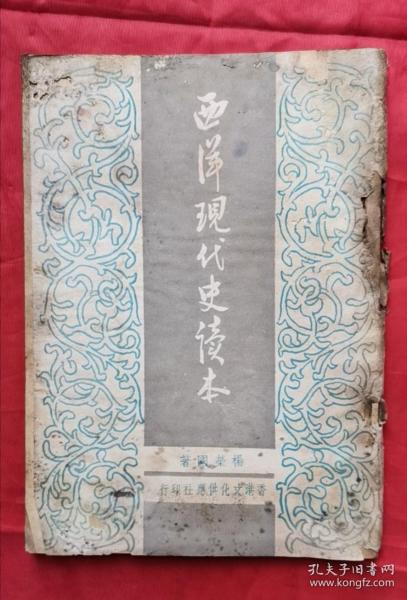 西洋現代史读本
著國榮楊
行印社應供化文港香
孔夫子旧书网
www.kongfz.com